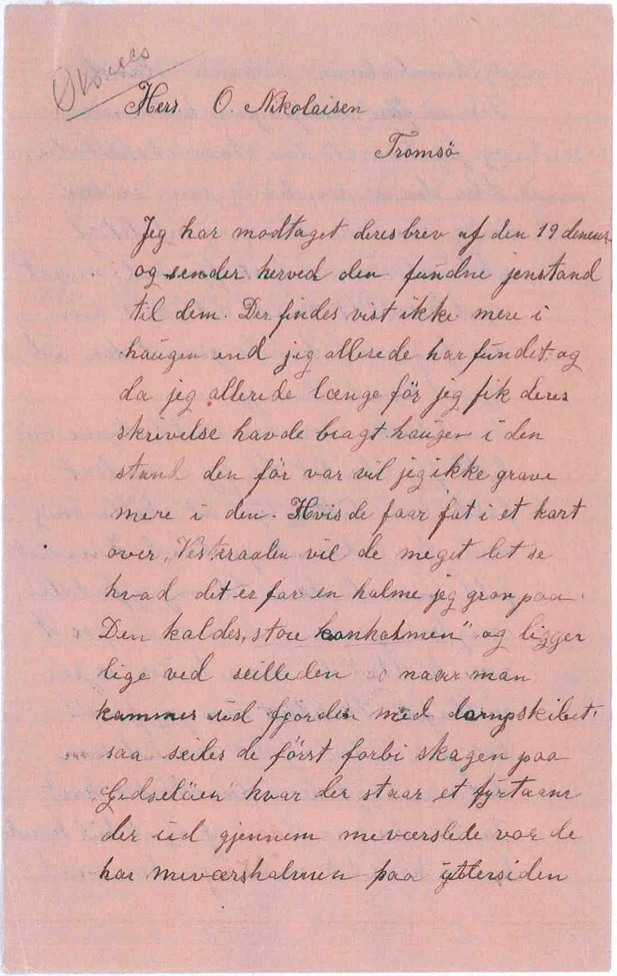 Herr O. Nikolaisen
Tromsö
Jeg har modtaget deres brev af den 19 denes
og sender herved den fundne jenstand
til dem. Der findes vist ikke mere i
haugen end jeg allerede har fundet, og
da jeg allerede længe för jeg fik deres
skrivelse havde bragt haugen i den
stand den för var vil jeg ikke grave
mere i den. Hvis de faar fat i et kart
over „Vesteraalen vil de meget let se
hvad det er for en holme jeg grov paa.
Den kaldes „store konholmen" og ligger
lige ved seilleden naar man
kommer ud fjorden med dampskibet,
saa seiler de först forbi skagen paa
Gidselöien hvor der staar et fyrtaarn
der ud gjennem meværs
har meværsholmen paa yttersiden